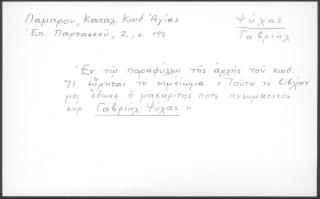 Λάμπρου, Καταλ. Κωδ. Ἁγίας
Ἐπ. Παρνασσοῦ, 2, σ. 198
Ψύχας
Γαβριήλ
Ἐν τῷ παραφύλλῳ τῆς ἀρχῆς τοῦ κωδ.
71 εὕρηται τὸ σημείωμα « Τοῦτο τὸ βιβλίον
μοι ἔδωκε ὁ μακαρίτης ποτε πνευματικός
κύρ Γαβριήλ Ψύχας »